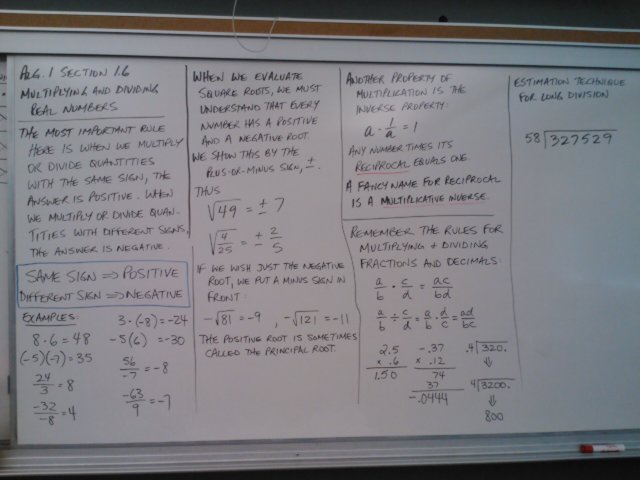 ALG. 1 SECTION 1.6
MULTIPLYING AND DIVIDING
REAL NUMBERS
THE MOST IMPORTANT RULE
HERE IS WHEN WE MULTIPLY
OR DIVIDE QUANTITIES
WITH THE SAME SIGN, THE
ANSWER IS POSITIVE. WHEN
WE MULTIPLY OR DIVIDE QUAN-
TITIES WITH DIFFERENT SIGNS,
THE ANSWER IS NEGATIVE.
SAME SIGN ⇒ POSITIVE
DIFFERENT SIGN ⇒ NEGATIVE
EXAMPLES:
8·6 = 48
(-5)(-7) = 35
24/3 = 8
-32/-8 = 4
3·(-8) = -24
-5(6) = -30
56/-7 = -8
-63/9 = -7
WHEN WE EVALUATE
SQUARE ROOTS, WE MUST
UNDERSTAND THAT EVERY
NUMBER HAS A POSITIVE
AND A NEGATIVE ROOT.
WE SHOW THIS BY THE
PLUS-OR-MINUS SIGN, ±.
THUS
√49 = ±7
√4/25 = ±2/5
IF WE WISH JUST THE NEGATIVE
ROOT, WE PUT A MINUS SIGN IN
FRONT:
-√81 = -9 , -√121 = -11
THE POSITIVE ROOT IS SOMETIMES
CALLED THE PRINCIPAL ROOT.
ANOTHER PROPERTY OF
MULTIPLICATION IS THE
INVERSE PROPERTY:
a · 1/a = 1
ANY NUMBER TIMES ITS
RECIPROCAL EQUALS ONE.
A FANCY NAME FOR RECIPROCAL
IS A MULTIPLICATIVE INVERSE.
REMEMBER THE RULES FOR
MULTIPLYING + DIVIDING
FRACTIONS AND DECIMALS:
a/b · c/d = ac/bd
a/b ÷ c/d = a/b · d/c = ad/bc
2.5
× .6
1.50
-.37
× .12
74
37
-.0444
.4⟌320.
⇓
4⟌3200.
⇓
800
ESTIMATION TECHNIQUE
FOR LONG DIVISION
58⟌327529